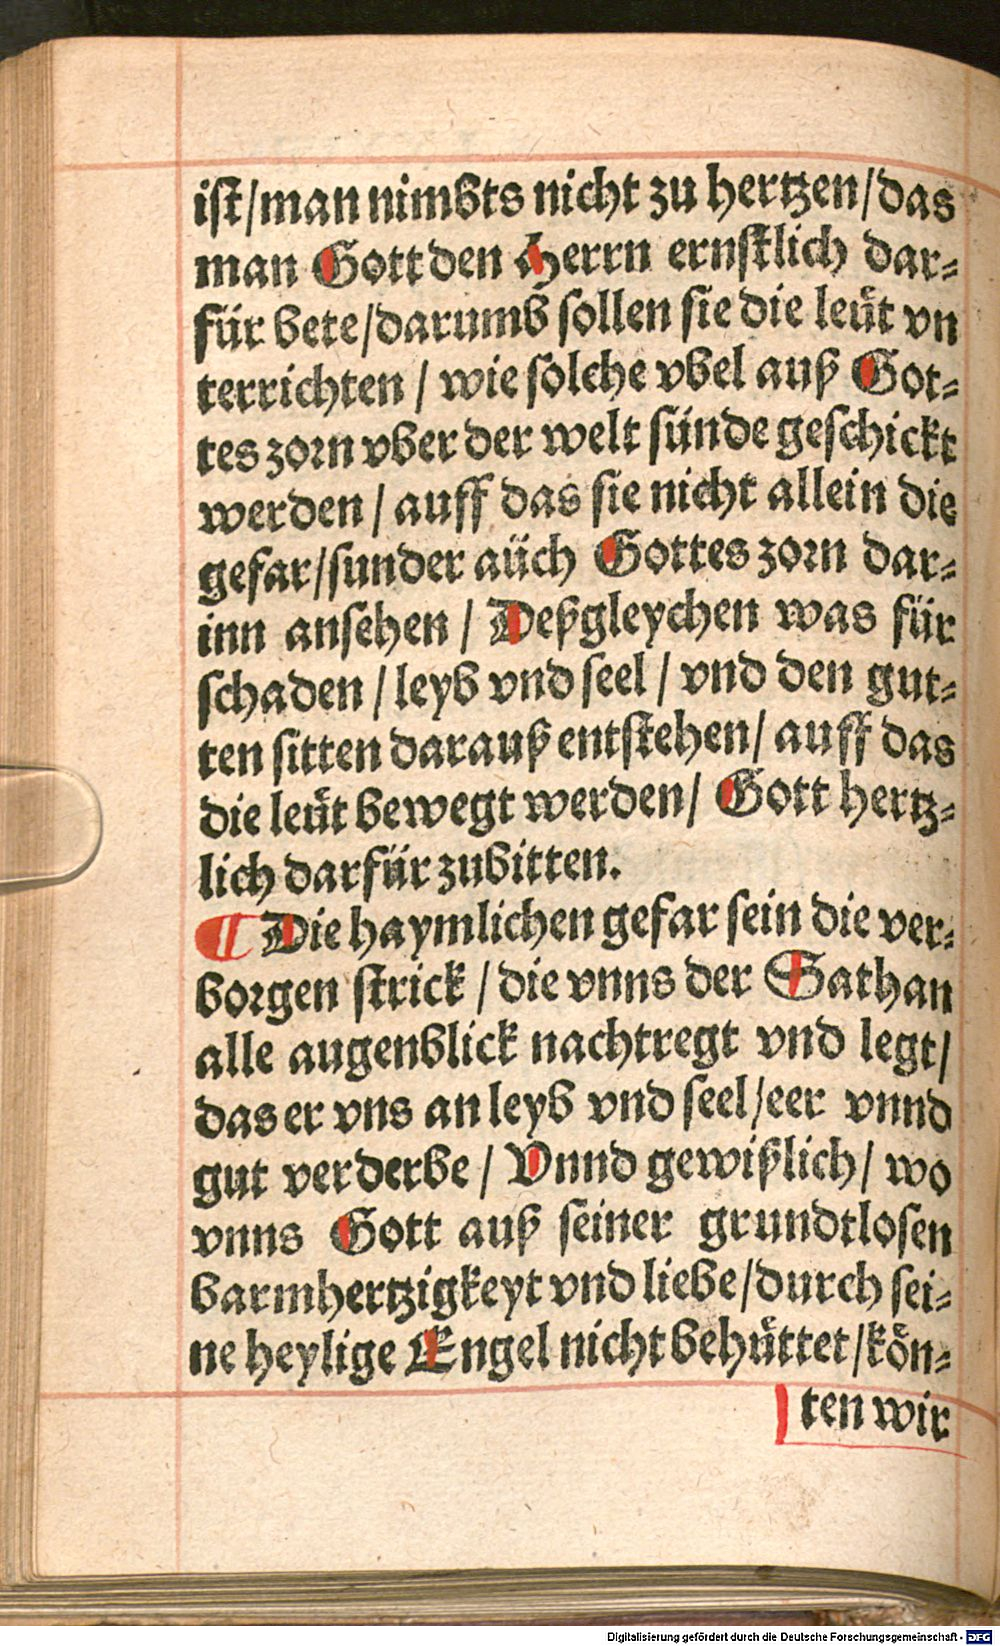 ist/man nimbts nicht zu hertzen/das
man Gott den Herrn ernstlich dar-
für bete/darumb sollen sie die leüt vn
terrichten / wie solche vbel auß Got-
tes zorn vber der welt sünde geschickt
werden / auff das sie nicht allein die
gefar/sunder aüch Gottes zorn dar-
inn ansehen / Deßgleychen was für
schaden / leyb vnd seel / vnd den gut-
ten sitten darauß entstehen/ auff das
die leüt bewegt werden/ Gott hertz-
lich darfür zubitten.
¶ Die haymlichen gefar sein die ver-
borgen strick / die vnns der Sathan
alle augenblick nachtregt vnd legt/
das er vns an leyb vnd seel/eer vnnd
gut verderbe / Vnnd gewißlich/ wo
vnns Gott auß seiner grundtlosen
barmhertzigkeyt vnd liebe/durch sei-
ne heylige Engel nicht behüttet/kön-
ten wir
Digitalisierung gefördert durch die Deutsche Forschungsgemeinschaft - DFG